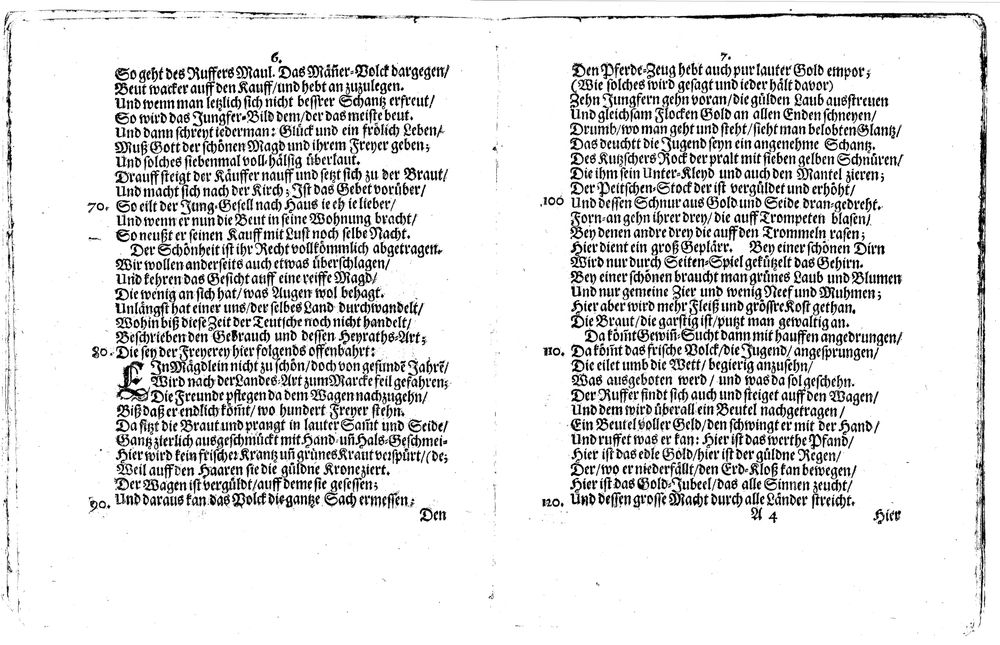 6.
So geht des Ruffers Maul. Das Mäñer-Volck dargegen/
Beut wacker auff den Kauff/und hebt an zuzulegen.
Und wenn man letzlich sich nicht bessrer Schantz erfreut/
So wird das Jungfer-Bild dem/der das meiste beut.
Und dann schreyt iederman: Glück und ein frölich Leben/
Muß Gott der schönen Magd und ihrem Freyer geben;
Und solches siebenmal voll-hälsig überlaut.
Drauff steigt der Käuffer nauff und setzt sich zu der Braut/
Und macht sich nach der Kirch; Ist das Gebet vorüber/
70. So eilt der Jung-Gesell nach Haus ie eh ie lieber/
Und wenn er nun die Beut in seine Wohnung bracht/
So neußt er seinen Kauff mit Lust noch selbe Nacht.
Der Schönheit ist ihr Recht vollkömmlich abgetragen.
Wir wollen anderseits auch etwas überschlagen/
Und kehren das Gesicht auff eine reiffe Magd/
Die wenig an sich hat/was Augen wol behagt.
Unlängst hat einer uns/der selbes Land durchwandelt/
Wohin biß diese Zeit der Teutsche noch nicht handelt/
Beschrieben den Gebrauch und dessen Heyraths-Art;
80. Die sey der Freyerey hier folgends offenbahrt:
EIn Mägdlein nicht zu schön/doch von gesundẽ Jahrẽ/
Wird nach der Landes-Art zum Marcke feil gefahren;
Die Freunde pflegen da dem Wagen nachzugehn/
Biß daß er endlich kömt/wo hundert Freyer stehn.
Da sitzt die Braut und prangt in lauter Sam̃t und Seide/
Gantz zierlich ausgeschmückt mit Hand- uñ Hals-Geschmei-
Hier wird kein frischer Krantz uñ grünes Kraut verspürt/(de;
Weil auff den Haaren sie die güldne Krone ziert.
Der Wagen ist vergüldt/auff deme sie gesessen;
90. Und daraus kan das Volck die gantze Sach ermessen;
Den
7.
Den Pferde-Zeug hebt auch pur lauter Gold empor;
(Wie solches wird gesagt und ieder hält davor)
Zehn Jungfern gehn voran/die gülden Laub ausstreuen
Und gleichsam Flocken Gold an allen Enden schneyen/
Drumb/wo man geht und steht/sieht man belobten Glantz/
Das deuchtt die Jugend seyn ein angenehme Schantz.
Des Kutschers Rock der pralt mit sieben gelben Schnüren/
Die ihm sein Unter-Kleyd und auch den Mantel zieren;
Der Peitschen-Stock der ist vergüldet und erhöht/
100 Und dessen Schnur aus Gold und Seide dran-gedreht.
Forn-an gehn ihrer drey/die auff Trompeten blasen/
Bey denen andre drey die auff den Trommeln rasen;
Hier dient ein groß Geplärr. Bey einer schönen Dirn
Wird nur durch Seiten-Spiel gekützelt das Gehirn.
Bey einer schönen braucht man grünes Laub und Blumen
Und nur gemeine Zier und wenig Neef und Muhmen;
Hier aber wird mehr Fleiß und grössre Kost gethan.
Die Braut/die garstig ist/putzt man gewaltig an.
Da köm̃t Gewiñ-Sucht dann mit hauffen angedrungen/
110. Da köm̃t das frische Volck/die Jugend/angesprungen/
Die eilt umb die Wett/begierig anzusehn/
Was ausgeboten werd/und was da sol geschehn.
Der Ruffer findt sich auch und steiget auff den Wagen/
Und dem wird überall ein Beutel nachgetragen/
Ein Beutel voller Geld/den schwingt er mit der Hand/
Und ruffet was er kan: Hier ist das werthe Pfand/
Hier ist das edle Gold/hier ist der güldne Regen/
Der/wo er niederfällt/den Erd-Kloß kan bewegen/
Hier ist das Gold-Jubeel/das alle Sinnen zeucht/
120. Und dessen grosse Macht durch alle Länder streicht.
A 4
Hier